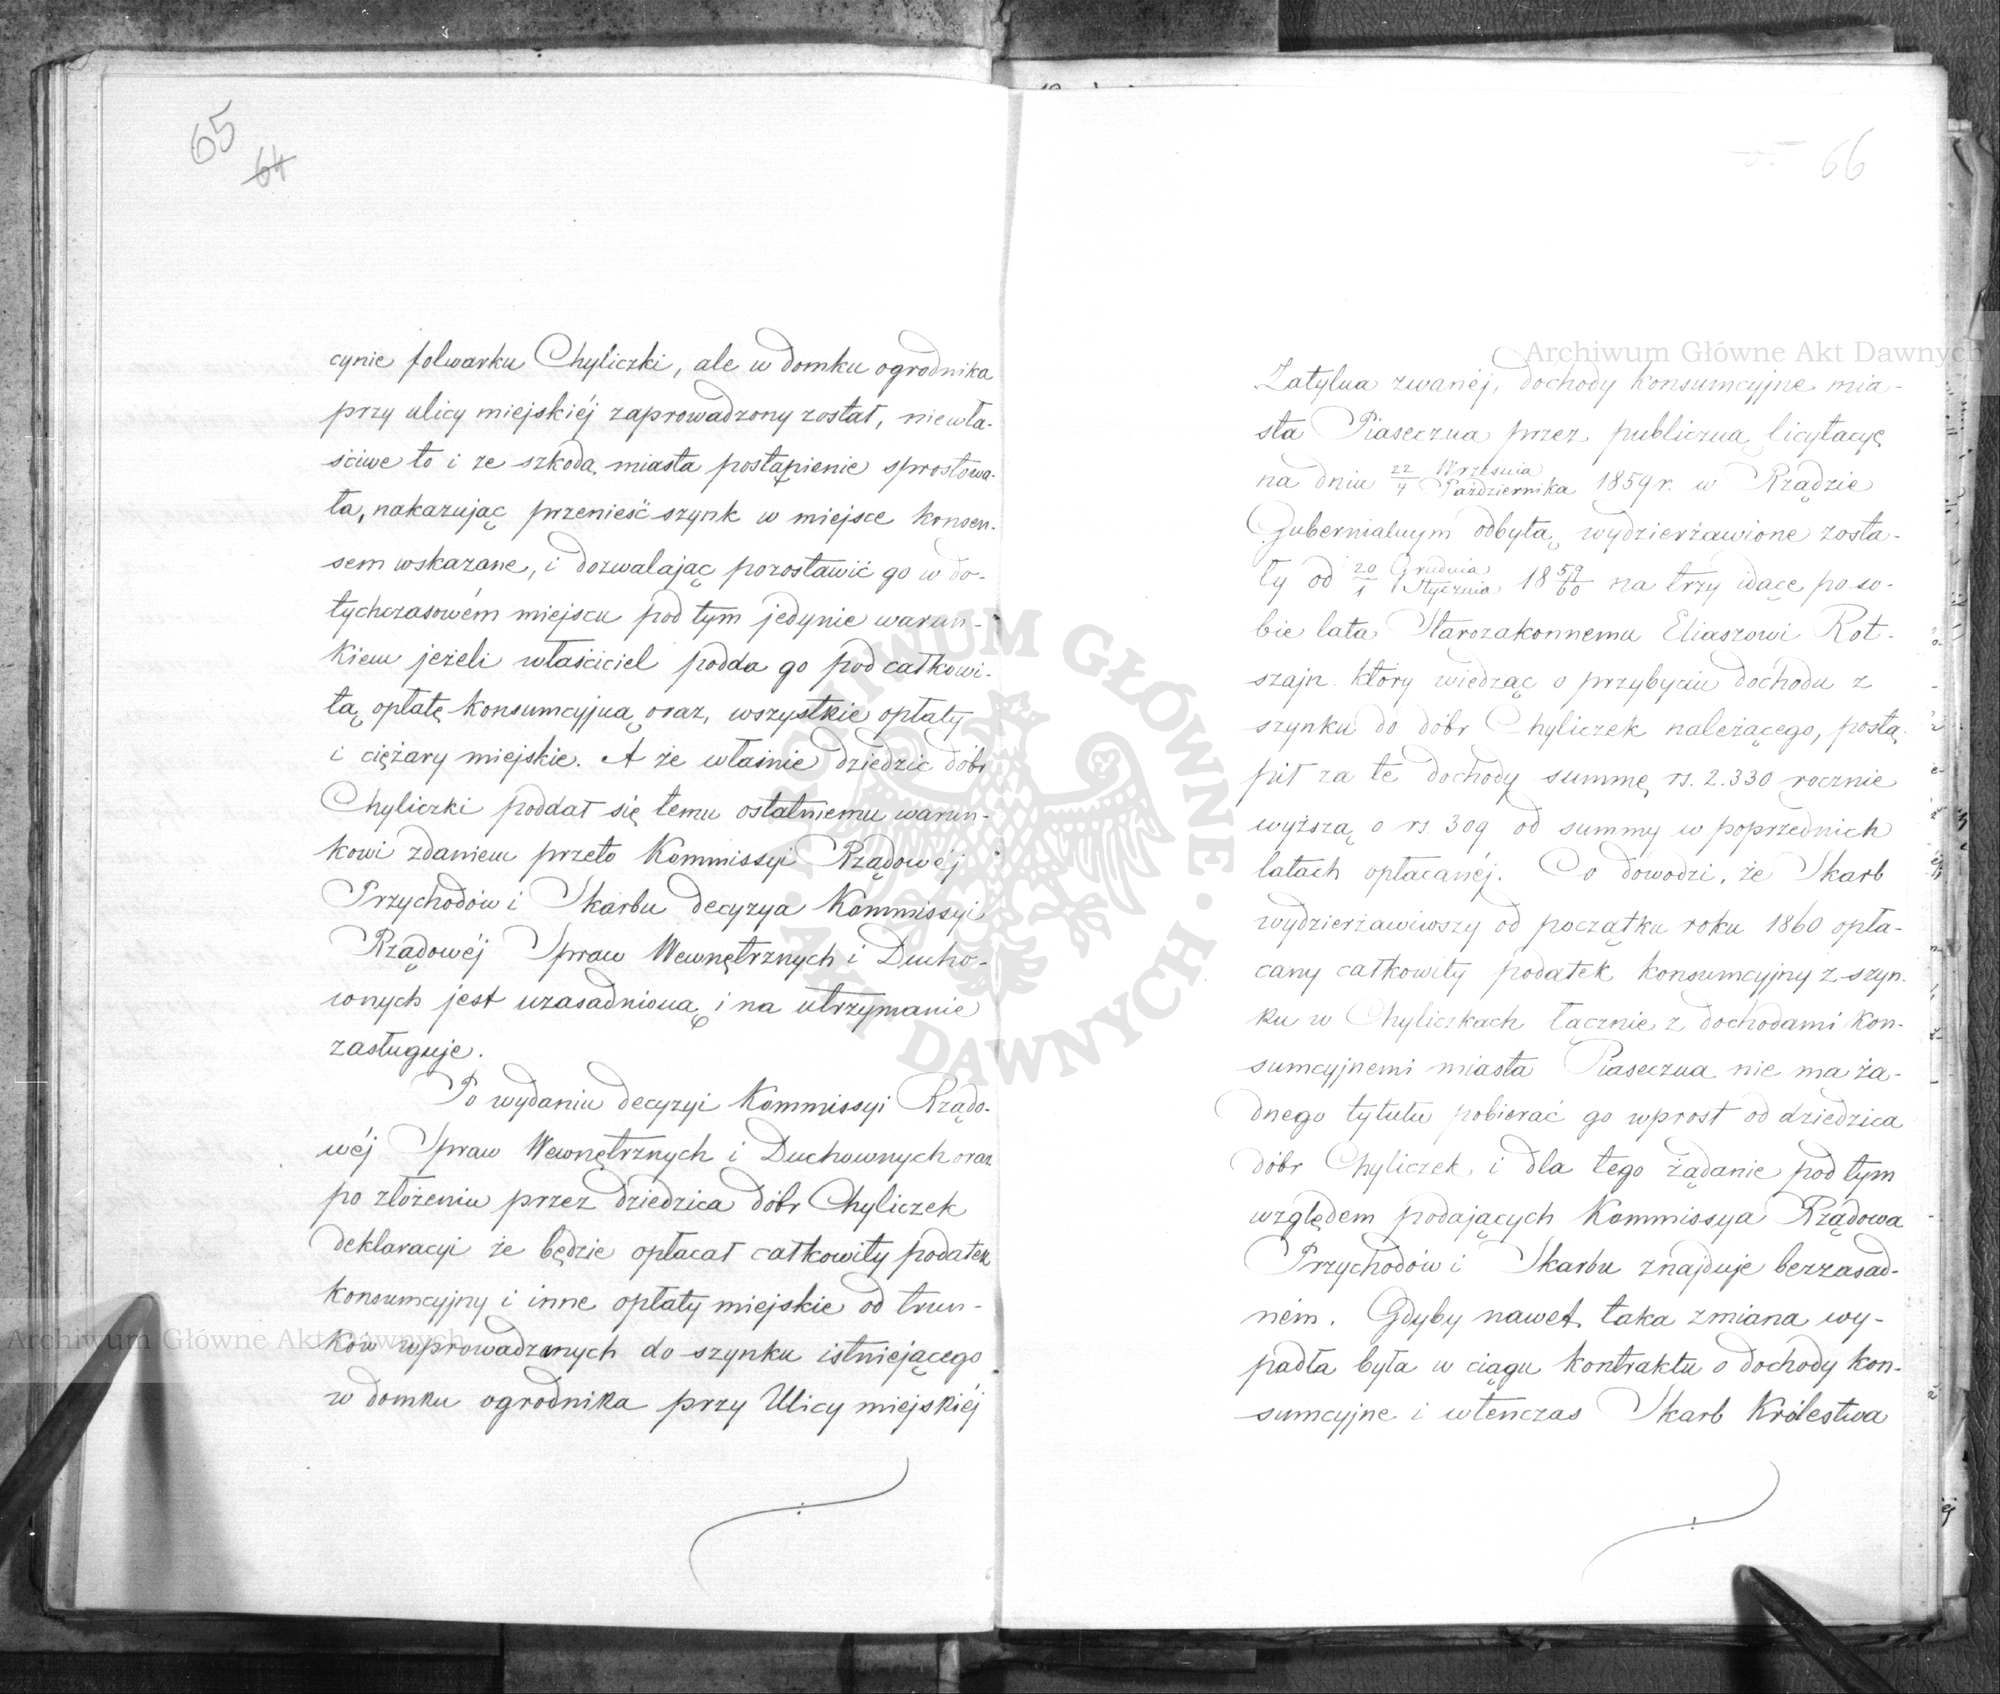 65
64
cynie folwarku Chyliczki, ale w domku ogrodnika
przy ulicy miejskiéj zaprowadzony został, niewła-
ściwe to i ze szkodą miasta postąpienie sprostowa-
ła, nakazując przenieść szynk w miejsce konsen-
sem wskazane, i dozwalając pozostawić go w do-
tychczasowém miejscu pod tym jedynie warun-
kiem jeżeli właściciel podda go pod całkowi-
tą opłatę konsumcyjną oraz, wszystkie opłaty
i ciężary miejskie. A że właśnie dziedzic dóbr
Chyliczki poddał się temu ostatniemu warun-
kowi zdaniem przeto Kommissyi Rządowéj
Przychodów i Skarbu decyzya Kommissyi
Rządowéj Spraw Wewnętrznych i Ducho-
wnych jest uzasadnioną i na utrzymanie
zasługuje.
Po wydaniu decyzyi Kommissyi Rządo-
wéj Spraw Wewnętrznych i Duchownych oraz
po złożeniu przez dziedzica dóbr Chyliczek
deklaracyi że będzie opłacał całkowity podatek
konsumcyjny i inne opłaty miejskie od trun-
ków wprowadzanych do szynku istniejącego
w domku ogrodnika przy Ulicy miejskiéj
66
Zatylna zwanéj, dochody konsumcyjne mia-
sta Piaseczna przez publiczną licytacyę
na dniu 22/4 Września/Października 1859 r. w Rządzie
Gubernialnym odbytą wydzierżawione zosta-
ły od 20/1 Grudnia/Stycznia 1859/60 na trzy idące po so-
bie lata Starozakonnemu Eliaszowi Rot-
szajn który wiedząc o przybyciu dochodu z
szynku do dóbr Chyliczek należącego, postą-
pił za te dochody summę rs. 2.330 rocznie
wyższą o rs. 309 od summy w poprzednich
latach opłacanéj. Co dowodzi, że Skarb
wydzierżawiwszy od początku roku 1860 opła-
cany całkowity podatek konsumcyjny z szyn-
ku w Chyliczkach łącznie z dochodami kon-
sumcyjnemi miasta Piaseczna nie ma ża-
dnego tytułu pobierać go wprost od dziedzica
dóbr Chyliczek i dla tego żądanie pod tym
względem podających Kommissya Rządowa
Przychodów i Skarbu znajduje bezzasad-
ném. Gdyby nawet taka zmiana wy-
padła była w ciągu kontraktu o dochody kon-
sumcyjne i wtenczas Skarb Królestwa
Archiwum Główne Akt Dawnych
Archiwum Główne Akt Dawnych
ARCHIWUM GŁÓWNE AKT DAWNYCH